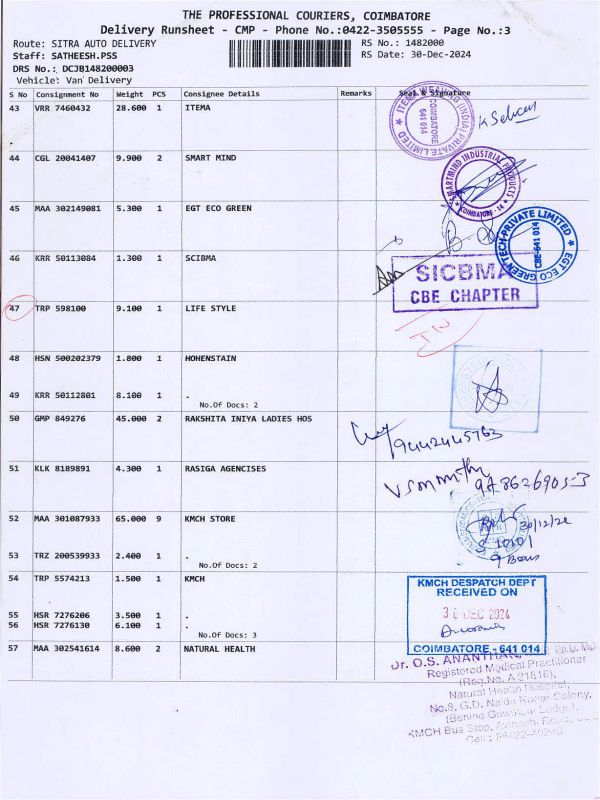 THE PROFESSIONAL COURIERS, COIMBATORE
Delivery Runsheet - CMP - Phone No.:0422-3505555 - Page No.:3
Route: SITRA AUTO DELIVERY
RS No.: 1482000
Staff: SATHEESH.PSS
RS Date: 30-Dec-2024
DRS No.: DCJB148200003
Vehicle: Van Delivery
S No Consignment No Weight PCS Consignee Details Remarks Seal & Signature
43 VRR 7460432 28.600 1 ITEMA
COIMBATORE 641 014
K Selvan
44 CGL 20041407 9.900 2 SMART MIND
SMARTMIND INDUSTRIAL PRODUCTS
COIMBATORE - 14
45 MAA 302149081 5.300 1 EGT ECO GREEN
EGT ECO GREENTECH PRIVATE LIMITED
CBE-641 014
46 KRR 50113084 1.300 1 SCIBMA
SICBMA
CBE CHAPTER
47 TRP 598100 9.100 1 LIFE STYLE
48 HSN 500202379 1.800 1 HOHENSTAIN
49 KRR 50112801 8.100 1 .
No.Of Docs: 2
50 GMP 849276 45.000 2 RAKSHITA INIYA LADIES HOS
9442445763
51 KLK 8189891 4.300 1 RASIGA AGENCISES
9786269053
52 MAA 301087933 65.000 9 KMCH STORE
30/12/24
9 Boxes
53 TRZ 200539933 2.400 1 .
No.Of Docs: 2
54 TRP 5574213 1.500 1 KMCH
KMCH DESPATCH DEPT
RECEIVED ON
30 DEC 2024
COIMBATORE - 641 014
55 HSR 7276206 3.500 1 .
56 HSR 7276130 6.100 1 .
No.Of Docs: 3
57 MAA 302541614 8.600 2 NATURAL HEALTH
Dr. O.S. ANANTHAN
Registered Medical Practitioner
(Reg.No. A 21816),
Natural Health Hospital,
No.8, G.D. Naidu Nagar Colony,
KMCH Bus Stop, Avinashi Road,
Cell :